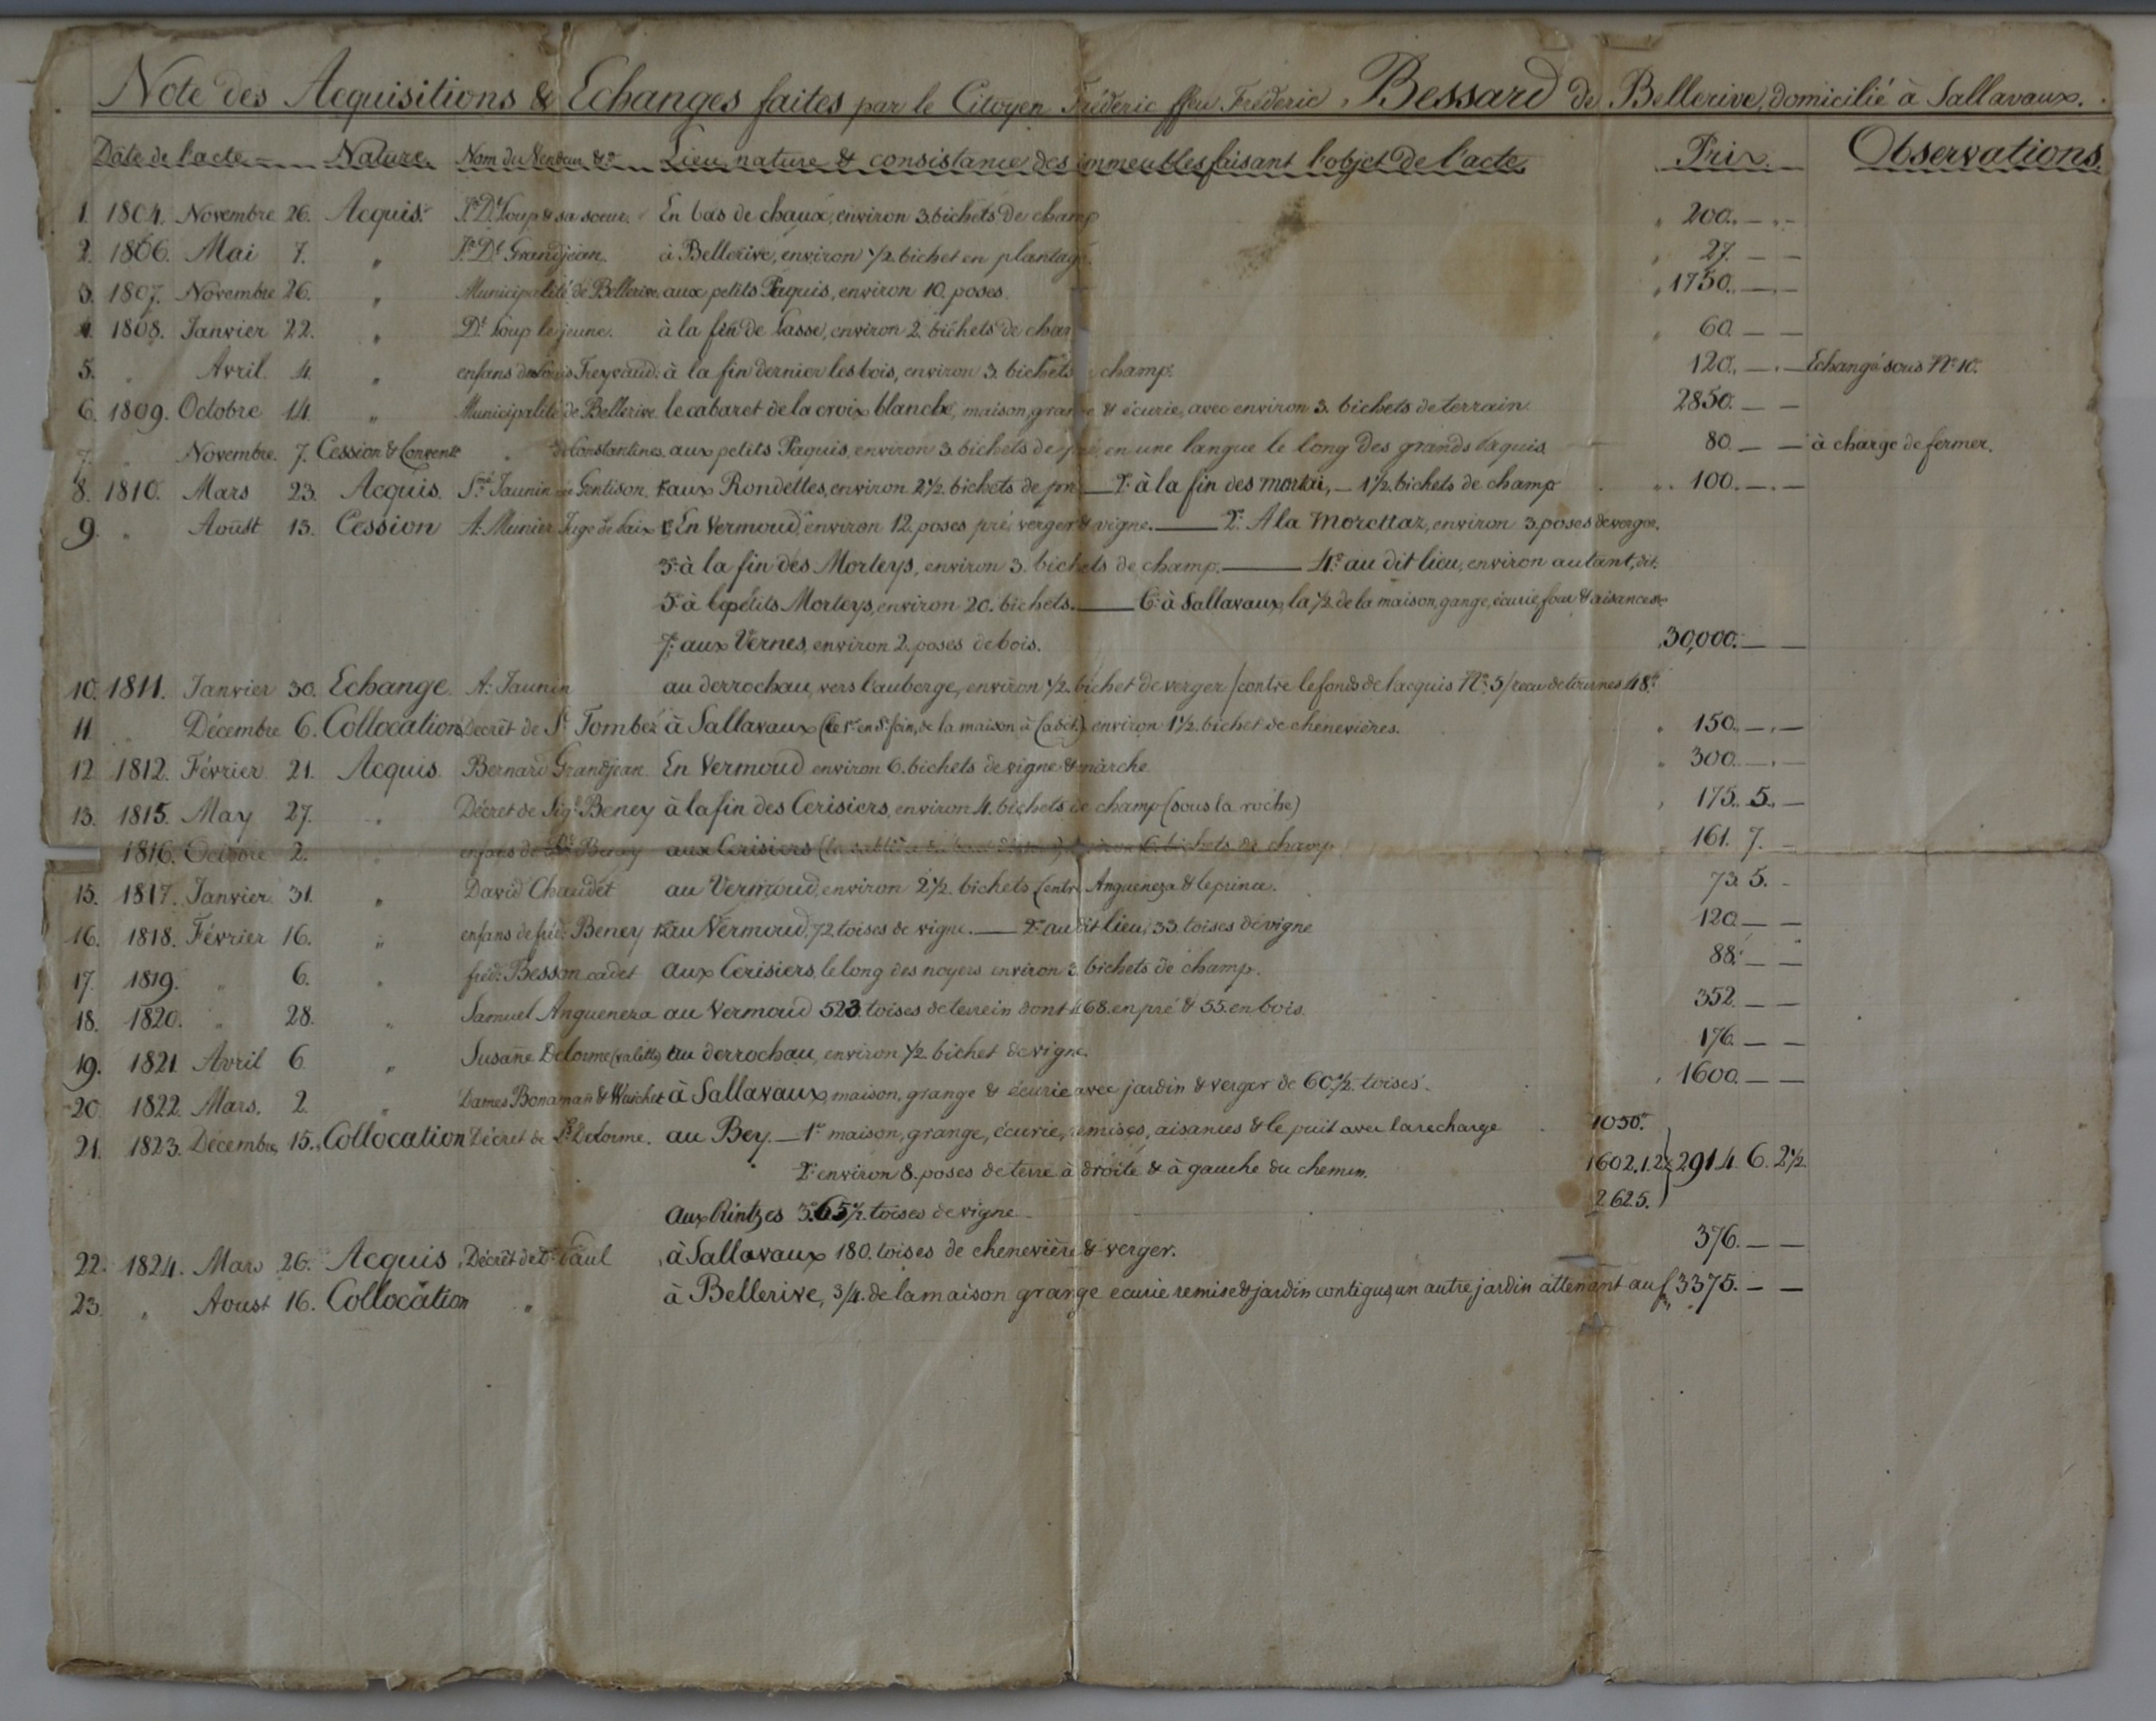 Note des Acquisitions & Echanges faites par le Citoyen Fréderic ffeu Fréderic Bessard de Bellerive, domicilié à Sallavaux.
Date de l'acte Nature Nom du Vendeur &a Lieu, nature & consistance des immeubles faisant l'objet de l'acte Prix. Observations.
1. 1804. Novembre 26. Acquis. Loup & sa soeur. En bas de chaux, environ 3. bichets de champ 200. — —
2. 1806. Mai 7. " Grandjean. à Bellerive, environ 1/2. bichet en plantage. 27. — —
3. 1807. Novembre 26. " Municipalité de Bellerive. aux petits Paquis, environ 10. poses. 1750. — —
4. 1808. Janvier 22. " Dl. Loup le jeune. à la fin de Sasse, environ 2. bichets de 60. — —
5. " Avril 4. " enfans de à la fin dernier les bois, environ 3. bichets champ. 120. — — Echangé sous No. 10.
6. 1809. Octobre 14. " Municipalité de Bellerive. le cabaret de la croix blanche, maison, grange & écurie, avec environ 3. bichets de terrain. 2850. — —
7. " Novembre. 7. Cession & Convente " de Constantines. aux petits Paquis, environ 3. bichets de pré, en une langue le long des grands Paquis. 80. — — à charge de fermer.
8. 1810. Mars 23. Acquis. Jaunin Gentison. 1o. aux Rondettes, environ 2 1/2. bichets de pré — 2o. à la fin des mortai, — 1 1/2. bichets de champ 100. — —
9. " Aoust 13. Cession A. Munier Juge de Paix 1o. En Vermoud, environ 12. poses pré, verger & vigne. — 2o. A la Morettaz, environ 3. poses de verger.
3o. à la fin des Morteys, environ 3. bichets de champ. — 4o. au dit lieu, environ autant, dit.
5o. à les petits Morteys, environ 20. bichets. — 6o. à Sallavaux, la 1/2. de la maison, gange, écurie, four & aisances
7o. aux Vernes, environ 2. poses de bois. 30,000. — —
10. 1811. Janvier 30. Echange. A. Jaunin au derrochau, vers l'auberge, environ 1/2. bichet de verger / contre le fonds de l'acquis No. 5 / recu de tournes 48.
11. " Décembre 6. Collocation Decrêt de Tombez à Sallavaux environ 1 1/2. bichet de chenevières. 150. — —
12. 1812. Février 21. Acquis. Bernard Grandjean. En Vermoud environ 6. bichets de vigne & marche. 300. — —
13. 1815. May 27. " Décret de Sigd. Beney à la fin des Cerisiers, environ 4. bichets de champ (sous la roche) 175. 5. —
1816. Octobre 2. " enfans de Beney aux Cerisiers 6. bichets de champ 161. 7. —
15. 1817. Janvier 31. " David Chaudet au Vermoud, environ 2 1/2. bichets (entre Angueneza & le prince. 73. 5. -
16. 1818. Février 16. " enfans de fréd. Beney 1o. au Vermoud, 72. toises de vigne. — 2o. au dit lieu, 33. toises de vigne 120 — —
17. 1819. " 6. " fréd. Besson cadet aux Cerisiers, le long des noyers environ 3. bichets de champ. 88. — —
18. 1820. " 28. " Samuel Angueneza au Vermoud 523. toises de terrein dont 468. en pré & 55. en bois. 352. — —
19. 1821. Avril 6. " Susañe Delorme (valette) au derrochau, environ 1/2. bichet de vigne. 176. — —
20. 1822. Mars. 2. " Dames Bonamañ & Warchet à Sallavaux, maison, grange & écurie avec jardin & verger de 60 1/2. toises. 1600. — —
21. 1823. Décembre 15. Collocation Décret de Delorme. au Bey. — 1o. maison, grange, écurie, remises, aisances & le puit avec la recharge 1050.
2o. environ 8. poses de terre à droite & à gauche du chemin. 1602.1.2 1/2 } 2914. 6. 2 1/2.
Aux Rintzes 3o. 65 1/2. toises de vigne 262.5.
22. 1824. Mars 26. Acquis Décrêt de Paul à Sallavaux 180. toises de chenevière & verger. 376. — —
23. " Aoust 16. Collocation " à Bellerive, 3/4. de la maison grange ecurie remise & jardin contigus, un autre jardin attenant au 3375. — —